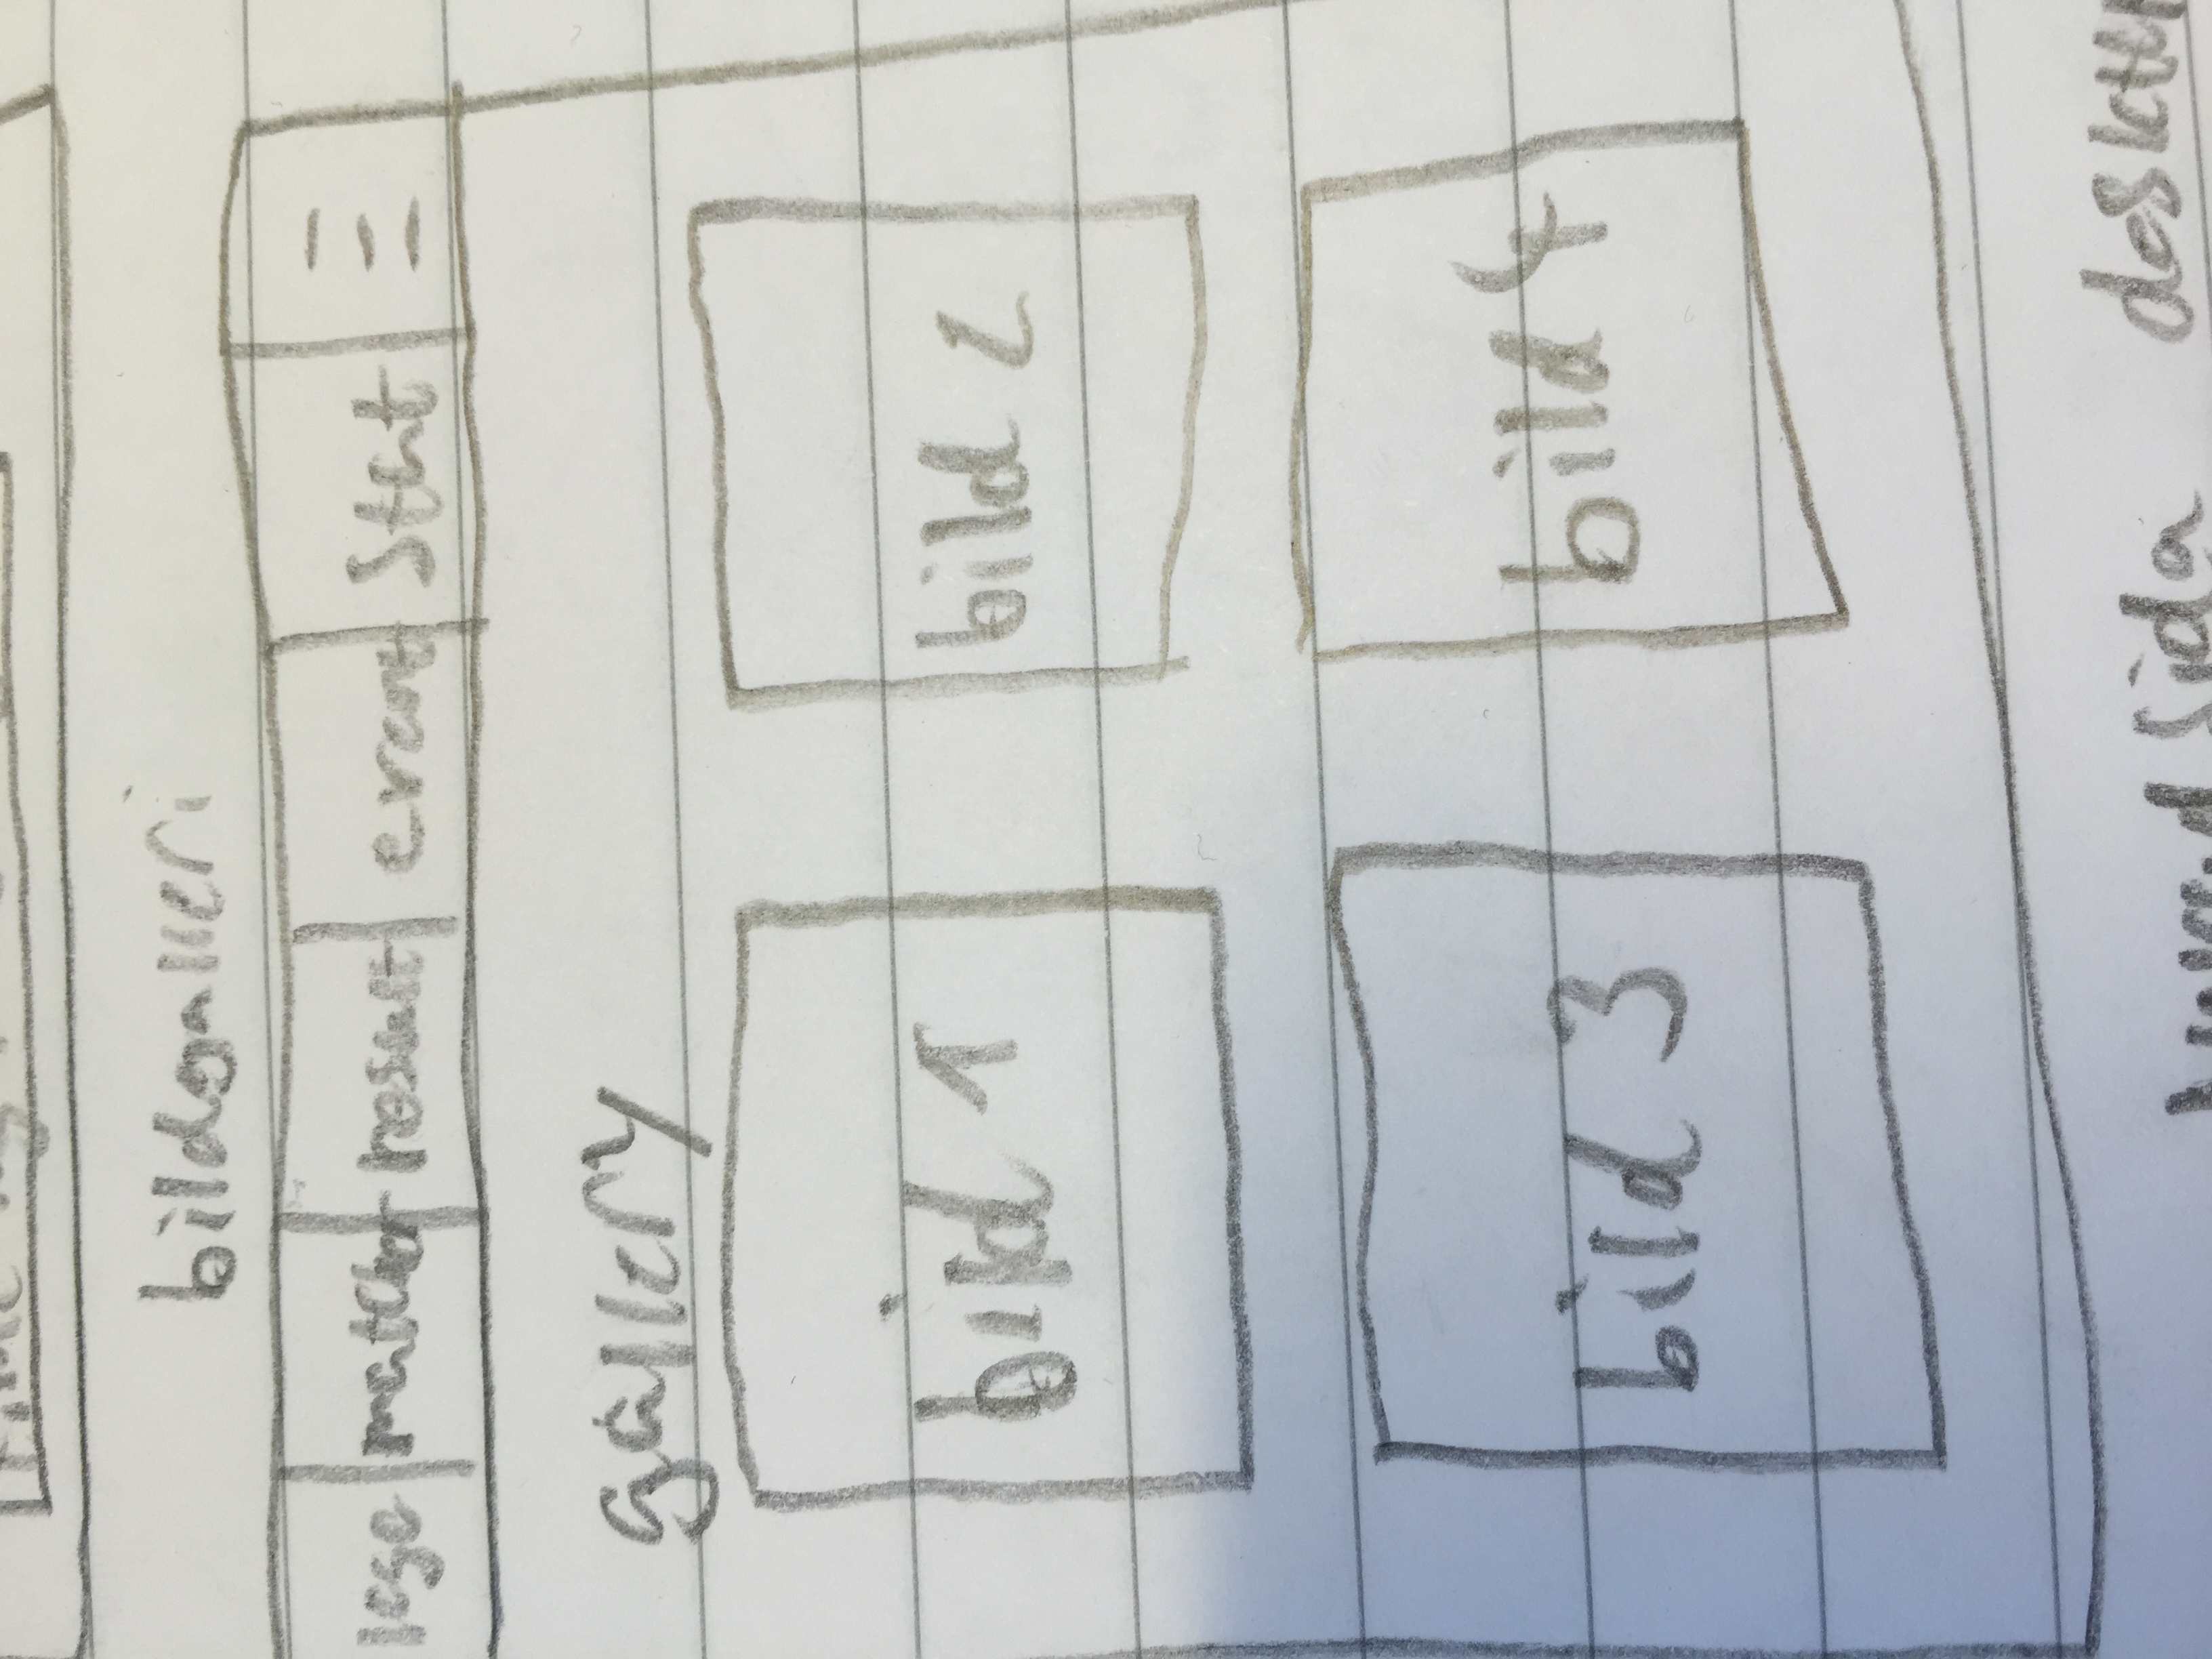 bildgalleri
matcher result event Stat
gallery
bild 1 bild 2
bild 3 bild 4
huvud Sida